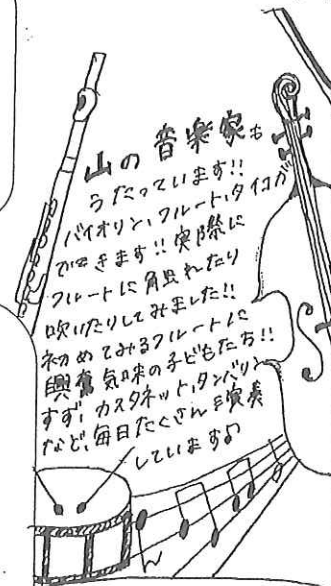 山の音楽家を
うたっています!!
バイオリン、フルート、タイコが
でてきます!! 実際に
フルートに触れたり
吹いたりしてみました!!
初めてみるフルートに
興奮気味の子どもたち!!
すず、カスタネット、タンバリン
など、毎日たくさん演奏
しています♪